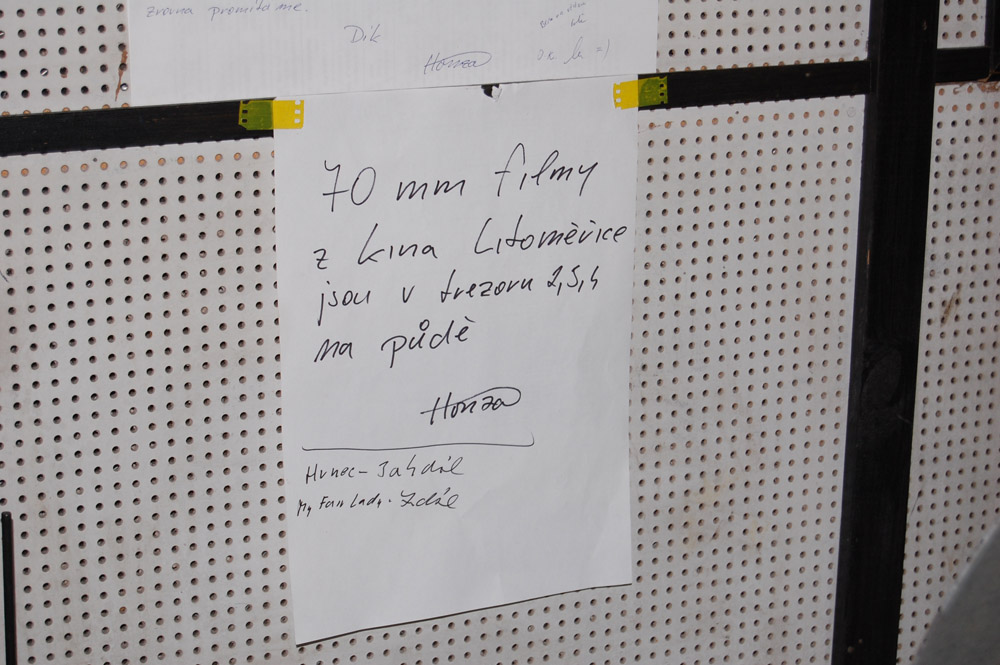 zrovna promítáme.
Dík
Honza
70 mm filmy
z kina Litoměřice
jsou v trezoru 2,5,4
na půdě
Honza
Hunec - 3 a 4 díl
My Fair Lady - 2 díl